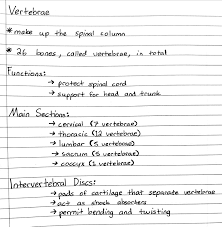 Vertebrae
* make up the spinal column
* 26 bones, called vertebrae, in total
Functions:
→ protect spinal cord
→ support for head and trunk
Main Sections:
→ cervical (7 vertebrae)
→ thoracic (12 vertebrae)
→ lumbar (5 vertebrae)
→ sacrum (5 vertebrae)
→ coccyx (1 vertebrae)
Intervertebral Discs:
→ pads of cartilage that separate vertebrae
→ act as shock absorbers
→ permit bending and twisting